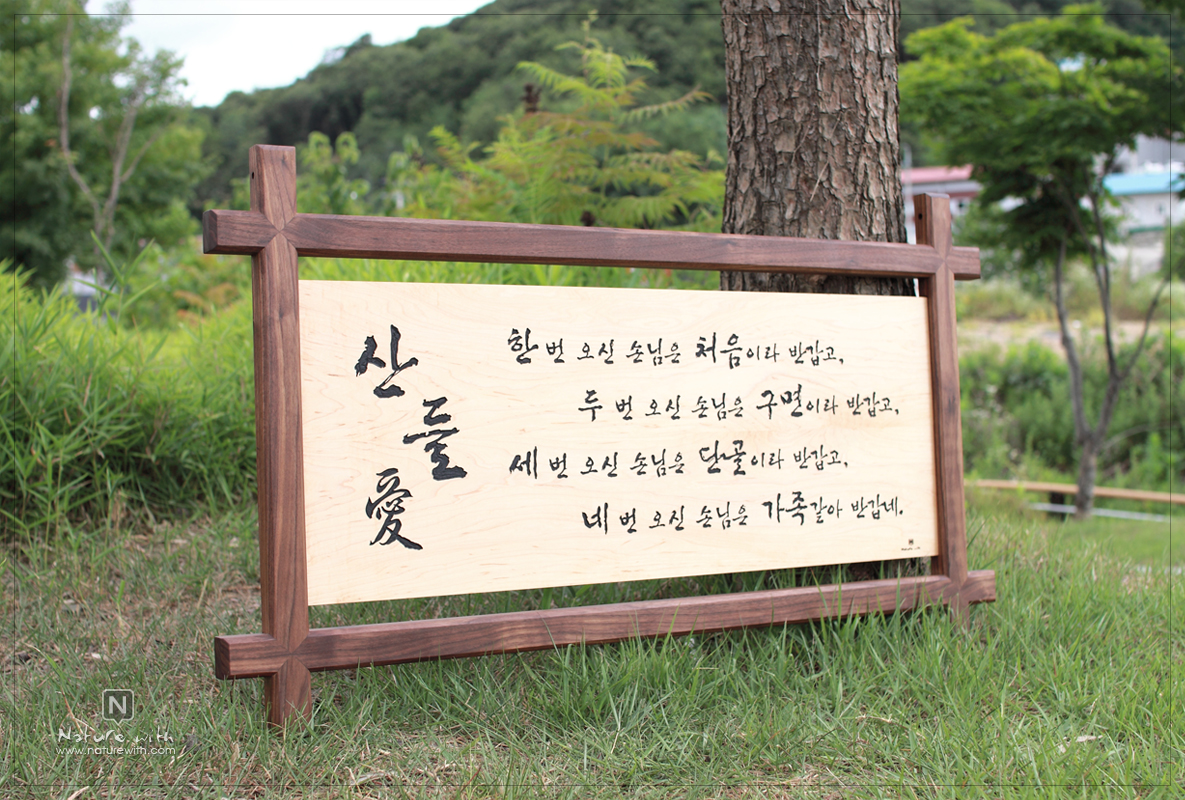 산들愛
한번 오신 손님은 처음이라 반갑고,
두 번 오신 손님은 구면이라 반갑고,
세번 오신 손님은 단골이라 반갑고,
네 번 오신 손님은 가족같아 반갑네.
N
Nature with
www.naturewith.com